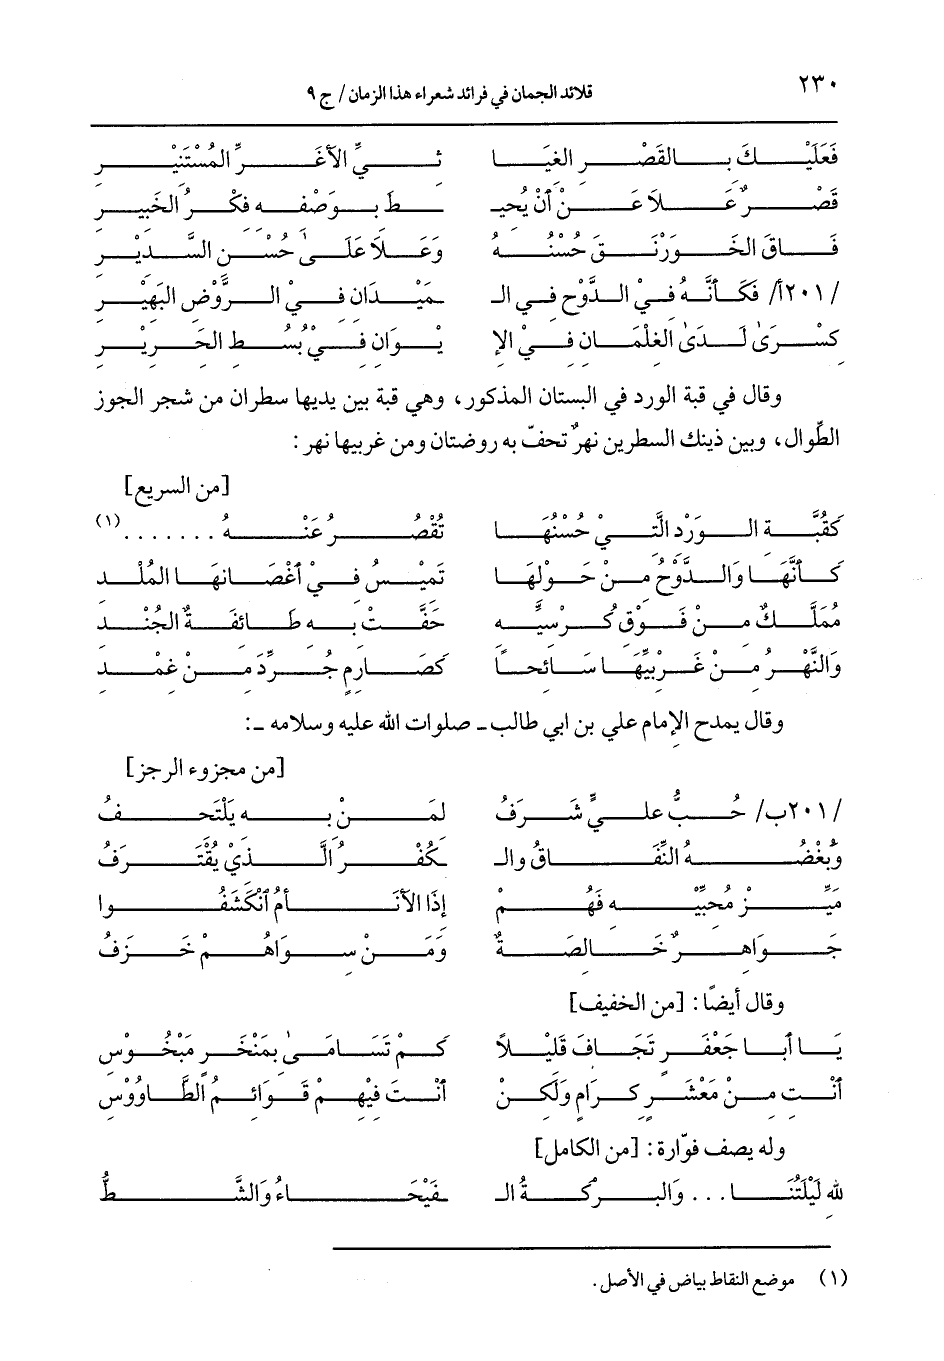 ٢٣٠
قلائد الجمان في فرائد شعراء هذا الزمان/ ج ٩
فَعَلَيْكَ بالقَصْرِ الغيَا ثيِّ الأغَرِّ المُسْتَنْيرِ
قَصْرٌ عَلاَ عَنْ أنْ يُحيـ ـطَ بوَصْفِهِ فكْرُ الخَبيرِ
فَاقَ الخَوَرْنَقَ حُسْنُهُ وَعَلاَ عَلَىٰ حُسْنِ السَّديْرِ
/٢٠١أ/ فَكَأنَّهُ فيْ الدَّوْحِ في الـ ـمَيْدَانِ فيْ الرَّوْضِ البَهْيرِ
كسْرَىٰ لَدَىٰ الغلْمَانِ فيْ الإ يْوَانِ فيْ بُسُطِ الحَريْرِ
وقال في قبة الورد في البستان المذكور، وهي قبة بين يديها سطران من شجر الجوز
الطِّوال، وبين ذينك السطرين نهرٌ تحفّ به روضتان ومن غربيها نهر:
[من السريع]
كَقُبَّة الوَرْد الَّتيْ حُسْنُهَا تُقْصُرُ عَنْهُ ....... (١)
كَأنَّهَا وَالدَّوْحُ مِنْ حَولهَا تَميْسُ فيْ أغْصَانهَا المُلْدِ
مُمَلَّكٌ مِنْ فَوْقِ كُرْسيِّه حَفَّتْ بِه طَائفَةُ الجُنْدِ
وَالنَّهْرُ مِنْ غَرْبيِّهَا سَائحاً كَصَارِمٍ جُرِّدَ مِنْ غمْدِ
وقال يمدح الإمام علي بن ابي طالب ـ صلوات الله عليه وسلامه ـ:
[من مجزوء الرجز]
/٢٠١ب/ حُبُّ عليٍّ شَرَفُ لمَنْ بِه يَلْتَحفُ
وَبُغْضُهُ النِّفَاقُ والـ ـكُفْرُ الَّذيْ يُقْتَرَفُ
مَيِّزْ مُحبِّيْه فَهُمْ إذَا الأنَامُ أنْكَشَفُوا
جَوَاهرٌ خَالصَةٌ وَمَنْ سوَاهُمْ خَزَفُ
وقال أيضاً: [من الخفيف]
يَا أبَا جَعْفَرٍ تَجَافَ قَليْلاً كَمْ تَسَامَىٰ بِمَنْخَرٍ مَبْخُوْسِ
أنْتَ مِنْ مَعْشَرٍ كرَامٍ وَلَكنْ أنْتَ فيْهِمْ قَوَائمُ الطَّاوُوْسِ
وله يصف فوّارة: [من الكامل]
لله لَيْلَتُنَا ... وَالبرْكَةُ الـ ـفَيْحَاءُ وَالشَّطُّ
(١) موضع النقاط بياض في الأصل.